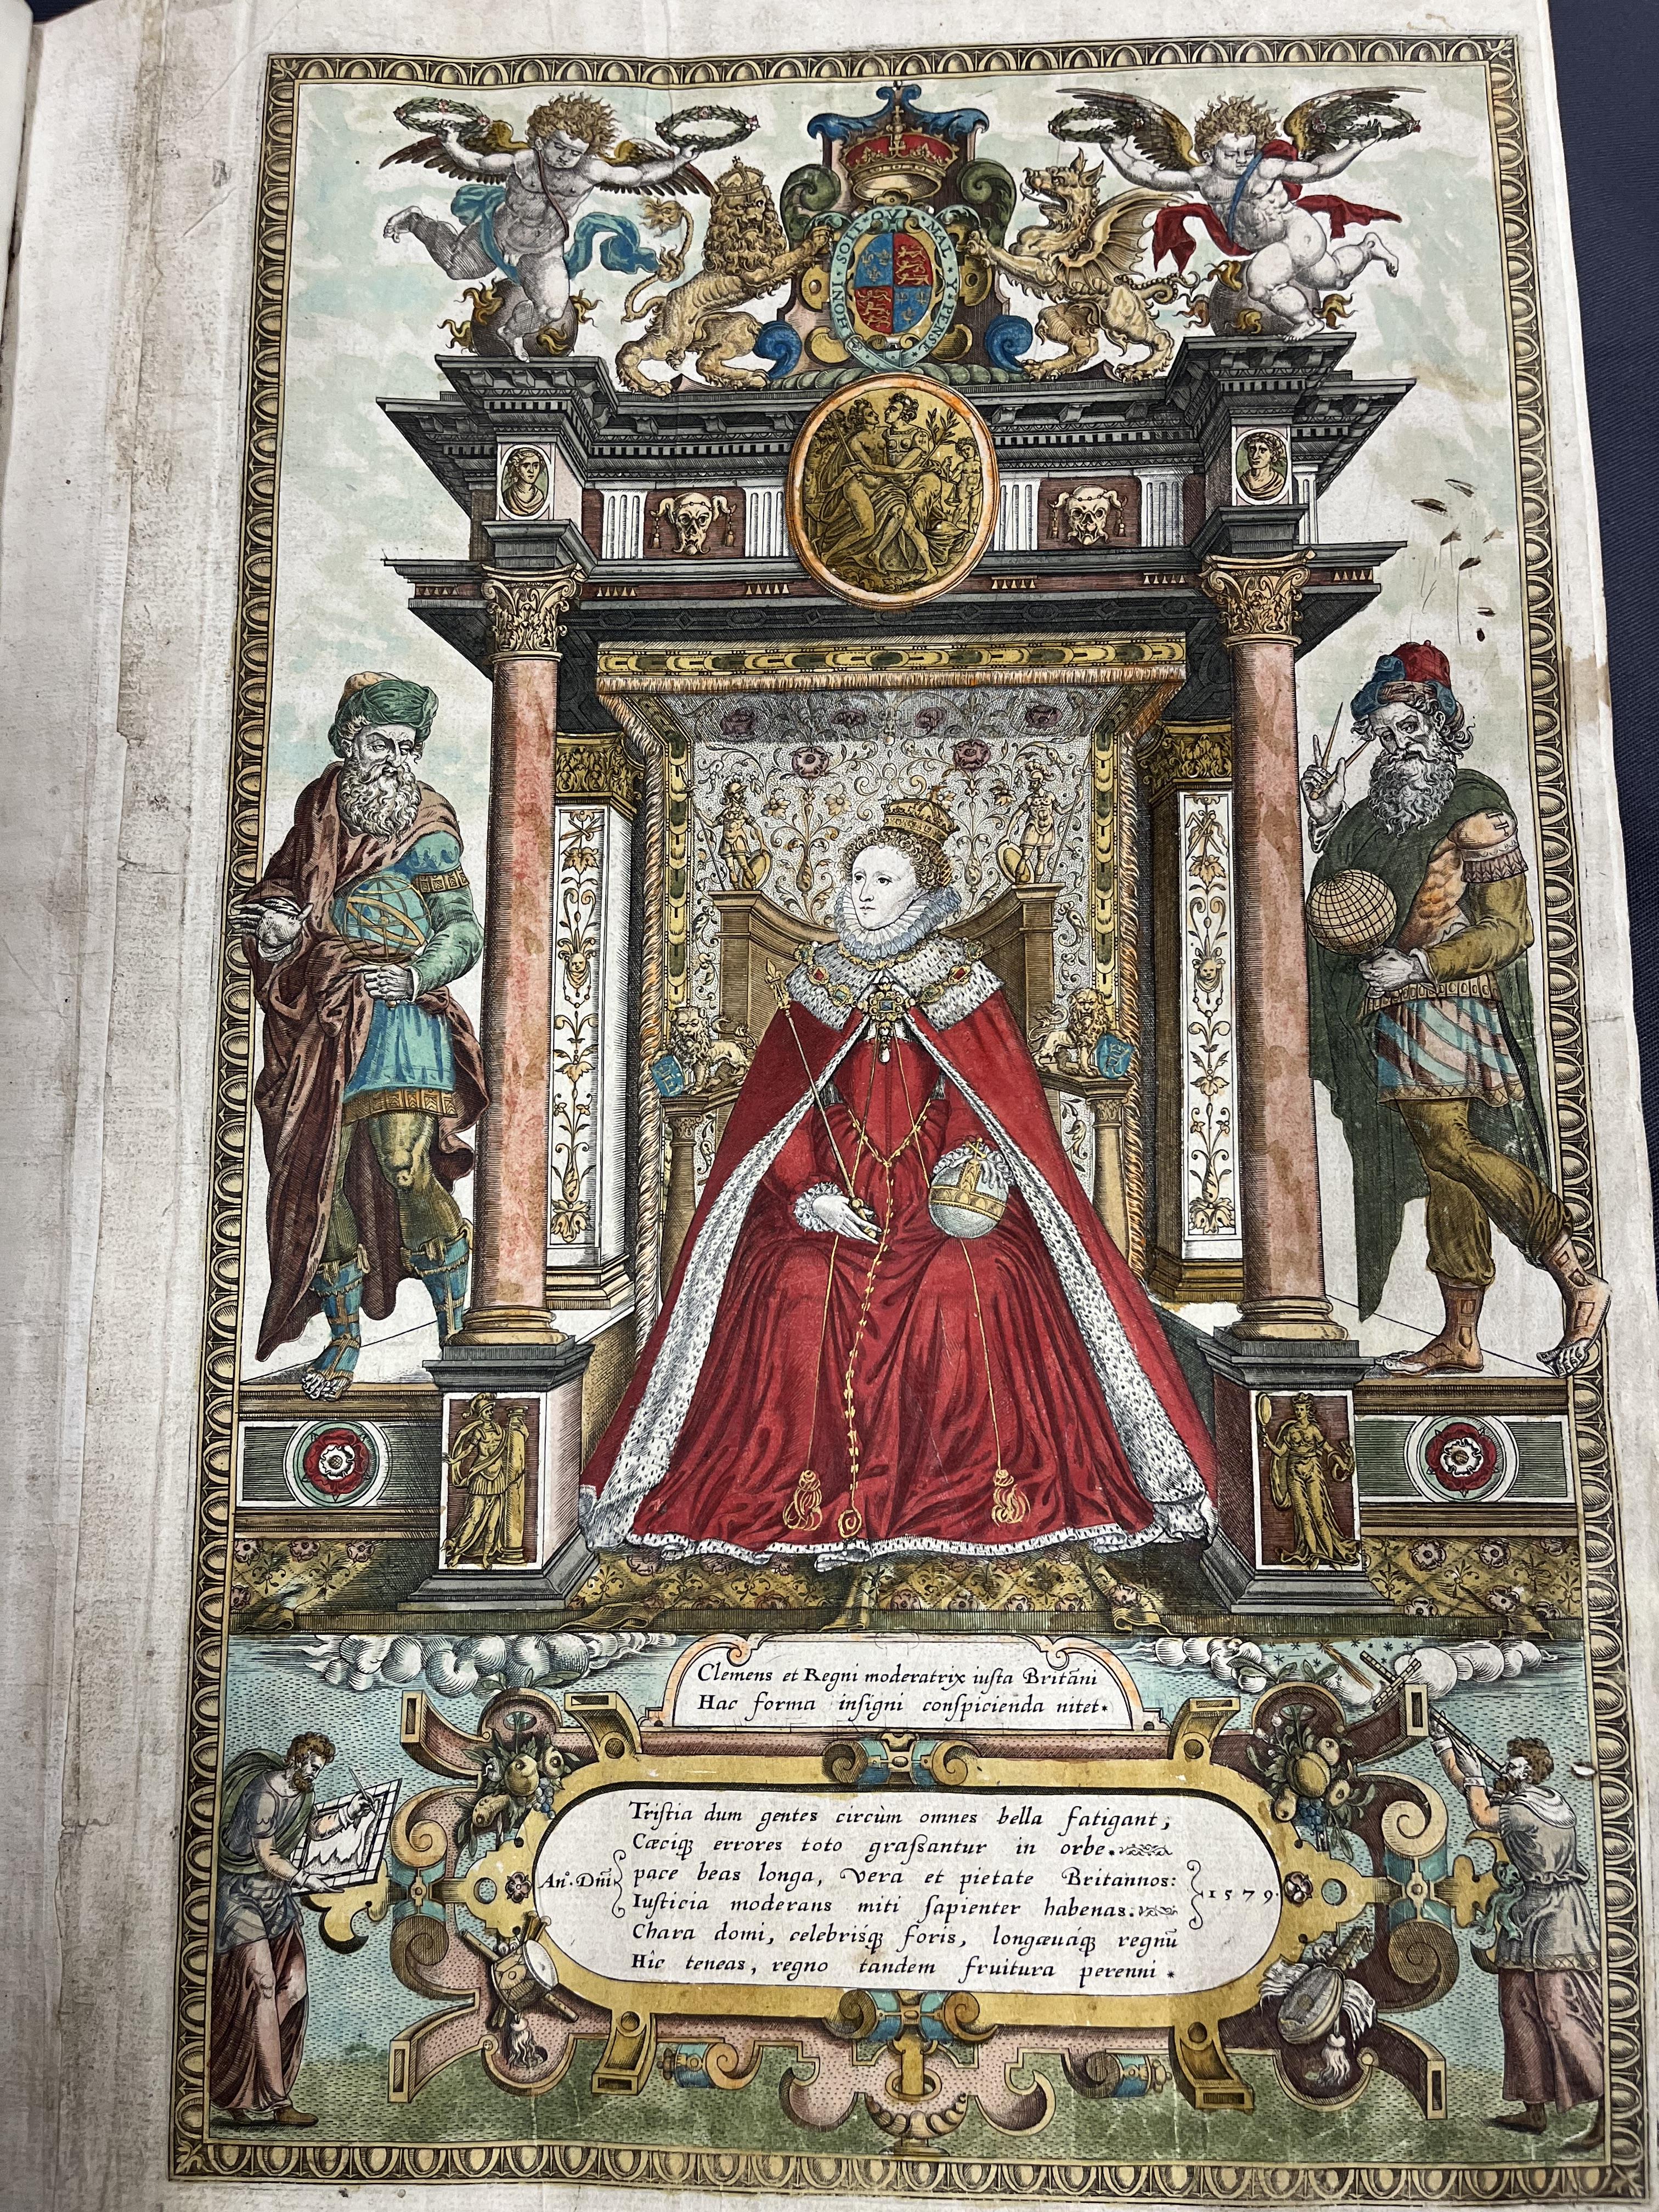 HONI · SOIT · QVI · MAL · Y · PENSE
Clemens et Regni moderatrix iusta Britāni
Hac forma insigni conspicienda nitet.
Tristia dum gentes circùm omnes bella fatigant;
Cæciq́ꝫ errores toto graßantur in orbe.
An̊. Dn̄i. pace beas longa, vera et pietate Britannos: 1579.
Iusticia moderans miti sapienter habenas.
Chara domi, celebrisq́ꝫ foris, longæuáqꝫ regnū
Hîc teneas, regno tandem fruitura perenni.